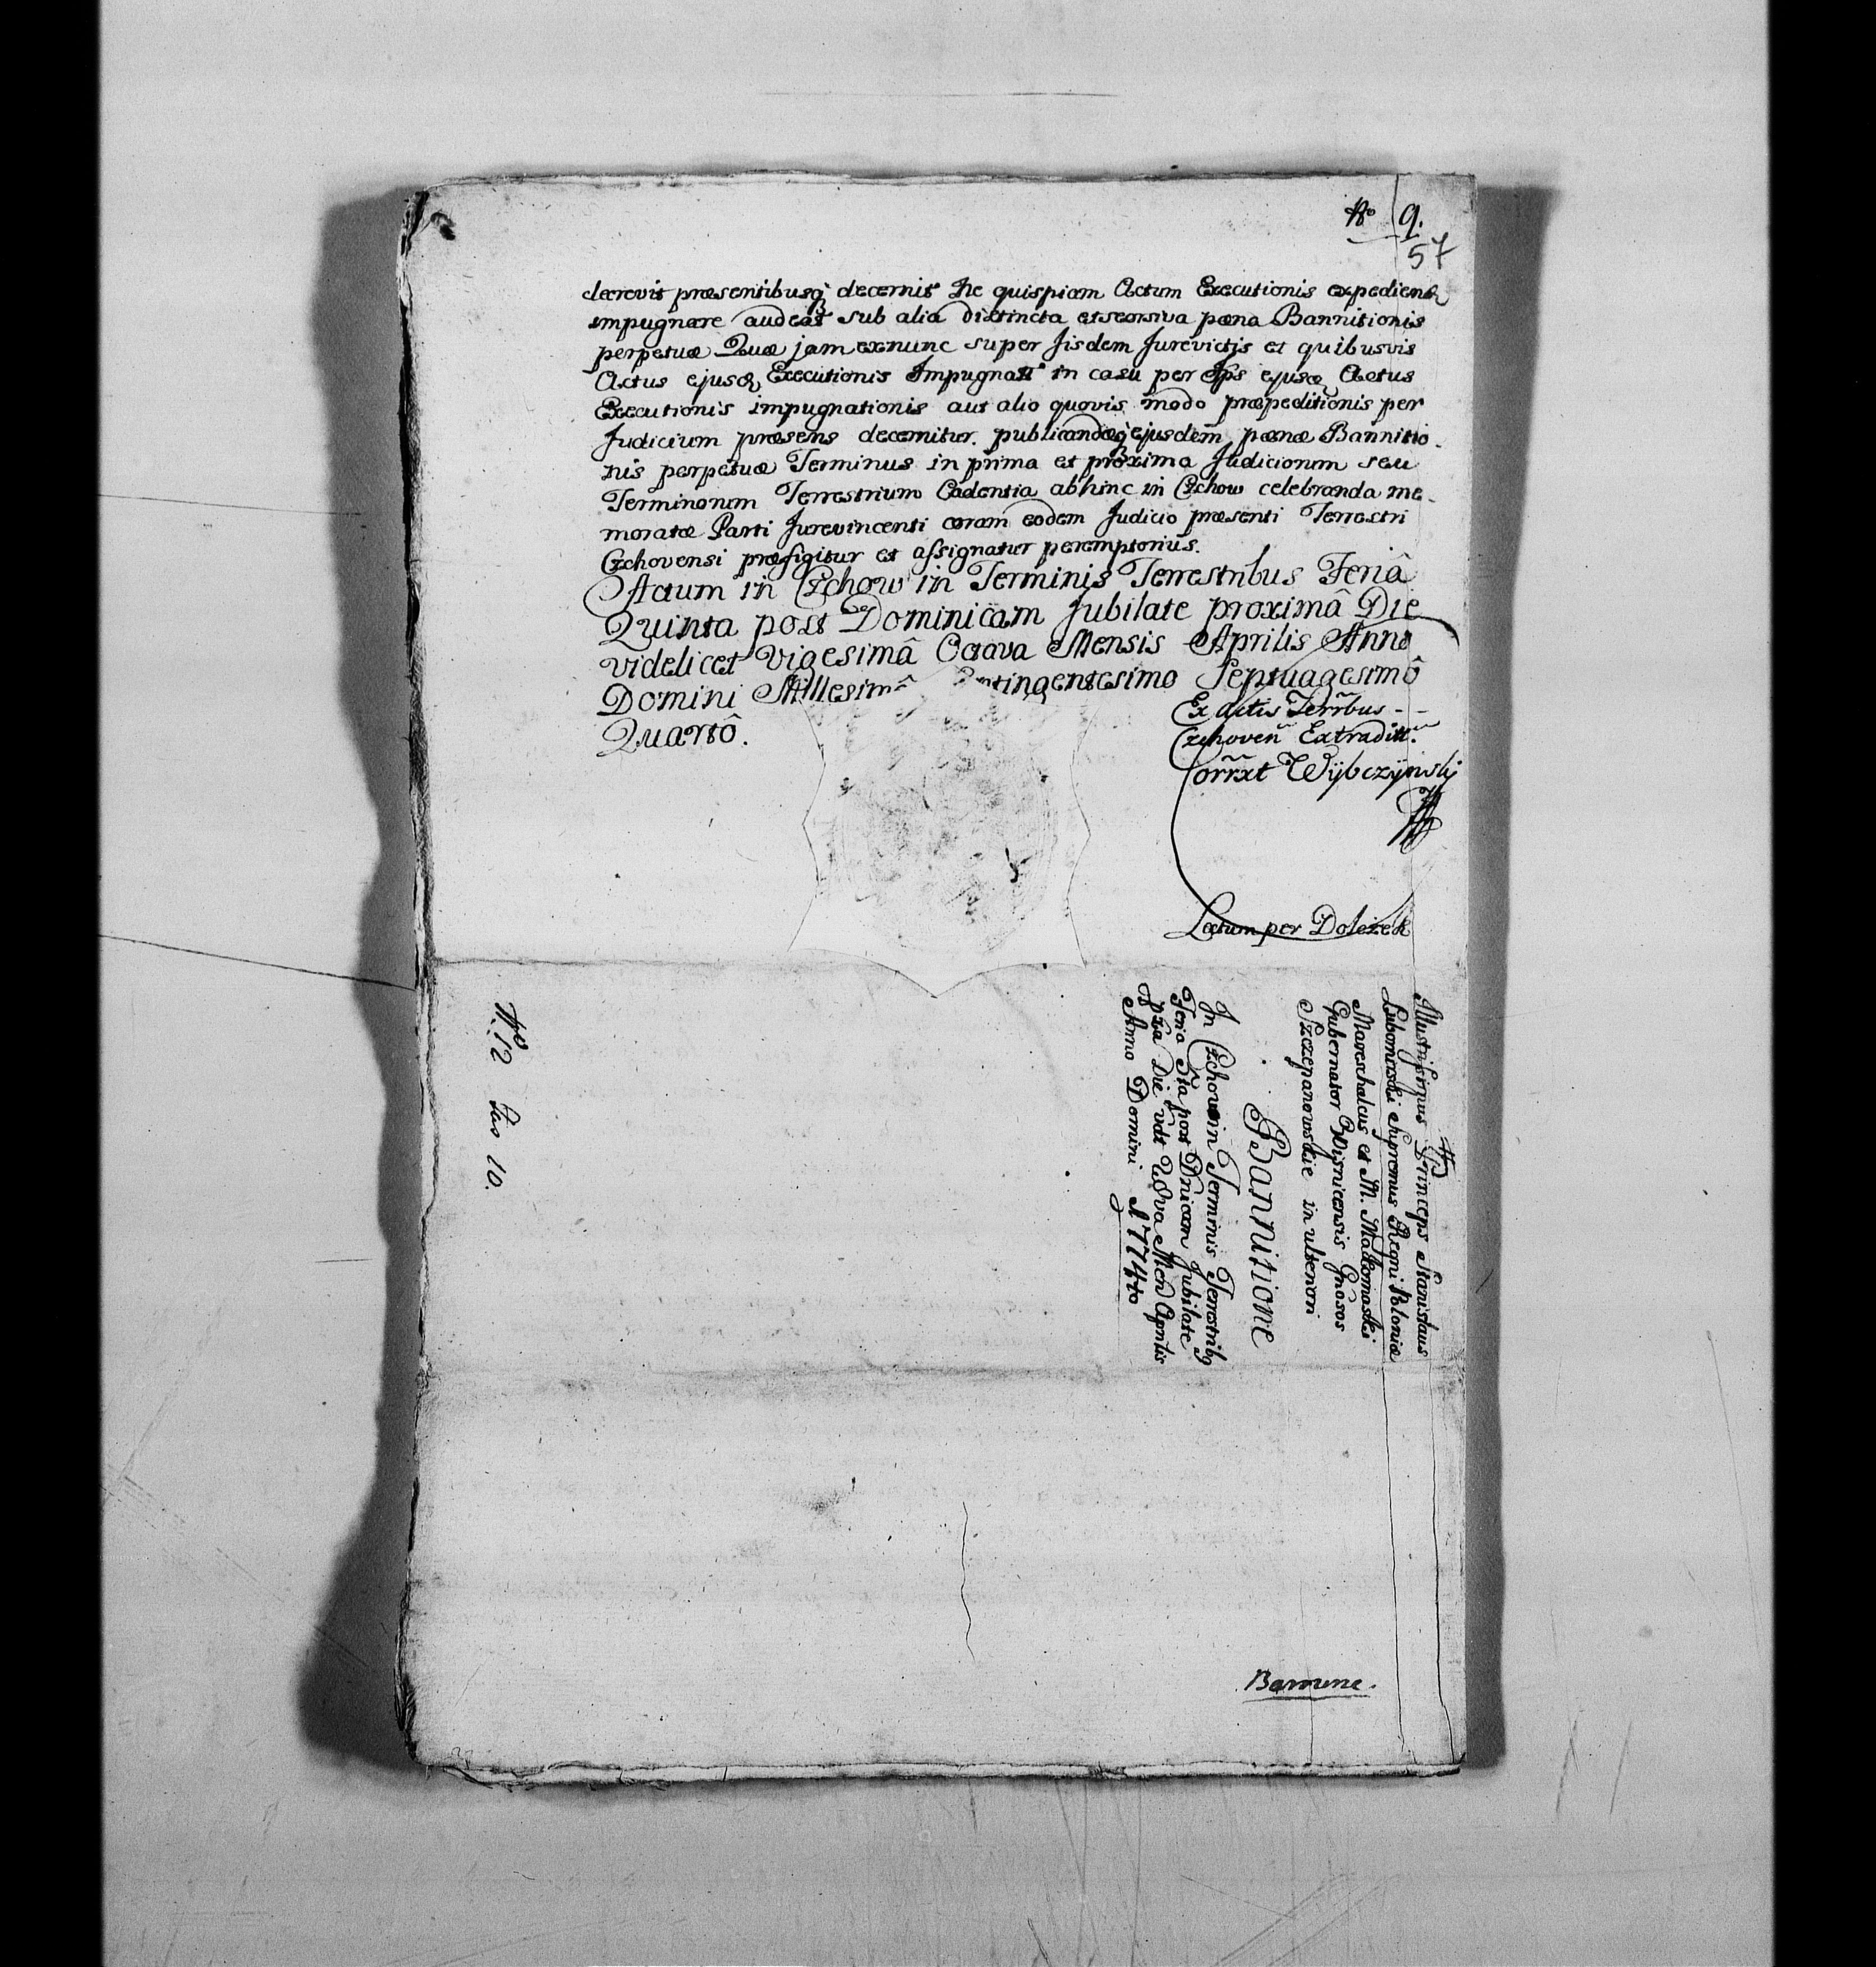 No 9.
57
decrevit præsentibusq decernit Ne quispiam Actum Executionis expediend
impugnare audeat sub alia distincta et seorsiva pæna Bannitionis
perpetuæ Quæ jam exnunc super Jisdem Jurevictis et quibusvis
Actus ejusq Executionis Impugnatt in casu per Ips ejusq Actus
Executionis impugnationis aut alio quovis modo præpeditionis per
Judicium præsens decernitur. publicandæq ejusdem pænæ Bannitio-
nis perpetuæ Terminus in prima et proxima Judiciorum seu
Terminorum Terrestrium Cadentia abhinc in Czchow celebranda me-
moratæ Parti Jurevincenti coram eodem Judicio præsenti Terrestri
Czchovensi præfigitur et assignatur peremptorius.
Actum in Czchow in Terminis Terrestribus Feriâ
Quinta post Dominicam Jubilate proximâ Die
videlicet Vigesimâ Octava Mensis Aprilis Anno
Domini Millesimô tingentesimo Septuagesimô
Quartô.
Ex actis Terrbus
Czchoven Extradit.
Corrxt Wÿbczÿnskj
Lectum per Doležek
Illustrissimus Princeps Stanislaus
Lubomirski Supremus Regni Poloniæ
Mareschalcus et M. Małkomaski
Gubernator Wisnicensis Gnosos
Szczepanowskie in ulteriori
Bannitione
In Czchow in Terminis Terrestribq
Feria 5ta post Dnicam Jubilate
pxa Die vdt Aprilis
Anno Domini 1774to
No 12 Fas 10.
Bannne.